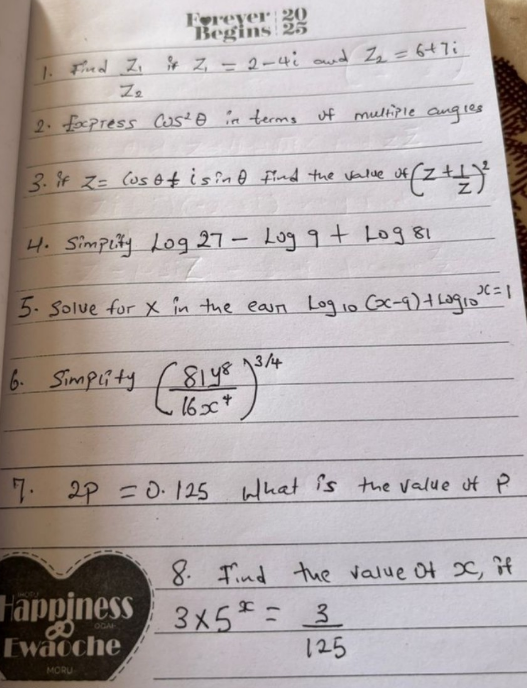 Forever Begins 20 25
1. Find Z₁/Z₂ if Z₁ = 2-4i and Z₂ = 6+7i
2. Express Cos²θ in terms of multiple angles
3. if Z = Cosθ + isinθ find the value of (Z + 1/Z)²
4. Simplify Log 27 - Log 9 + Log 81
5. Solve for X in the eqn Log₁₀ (x-9) + Log₁₀ x = 1
6. Simplify (81y⁸/16x⁴)^3/4
7. 2P = 0.125 What is the value of P
8. Find the value of x, if
3×5ˣ = 3/125
Happiness
Ewaoche
MORU